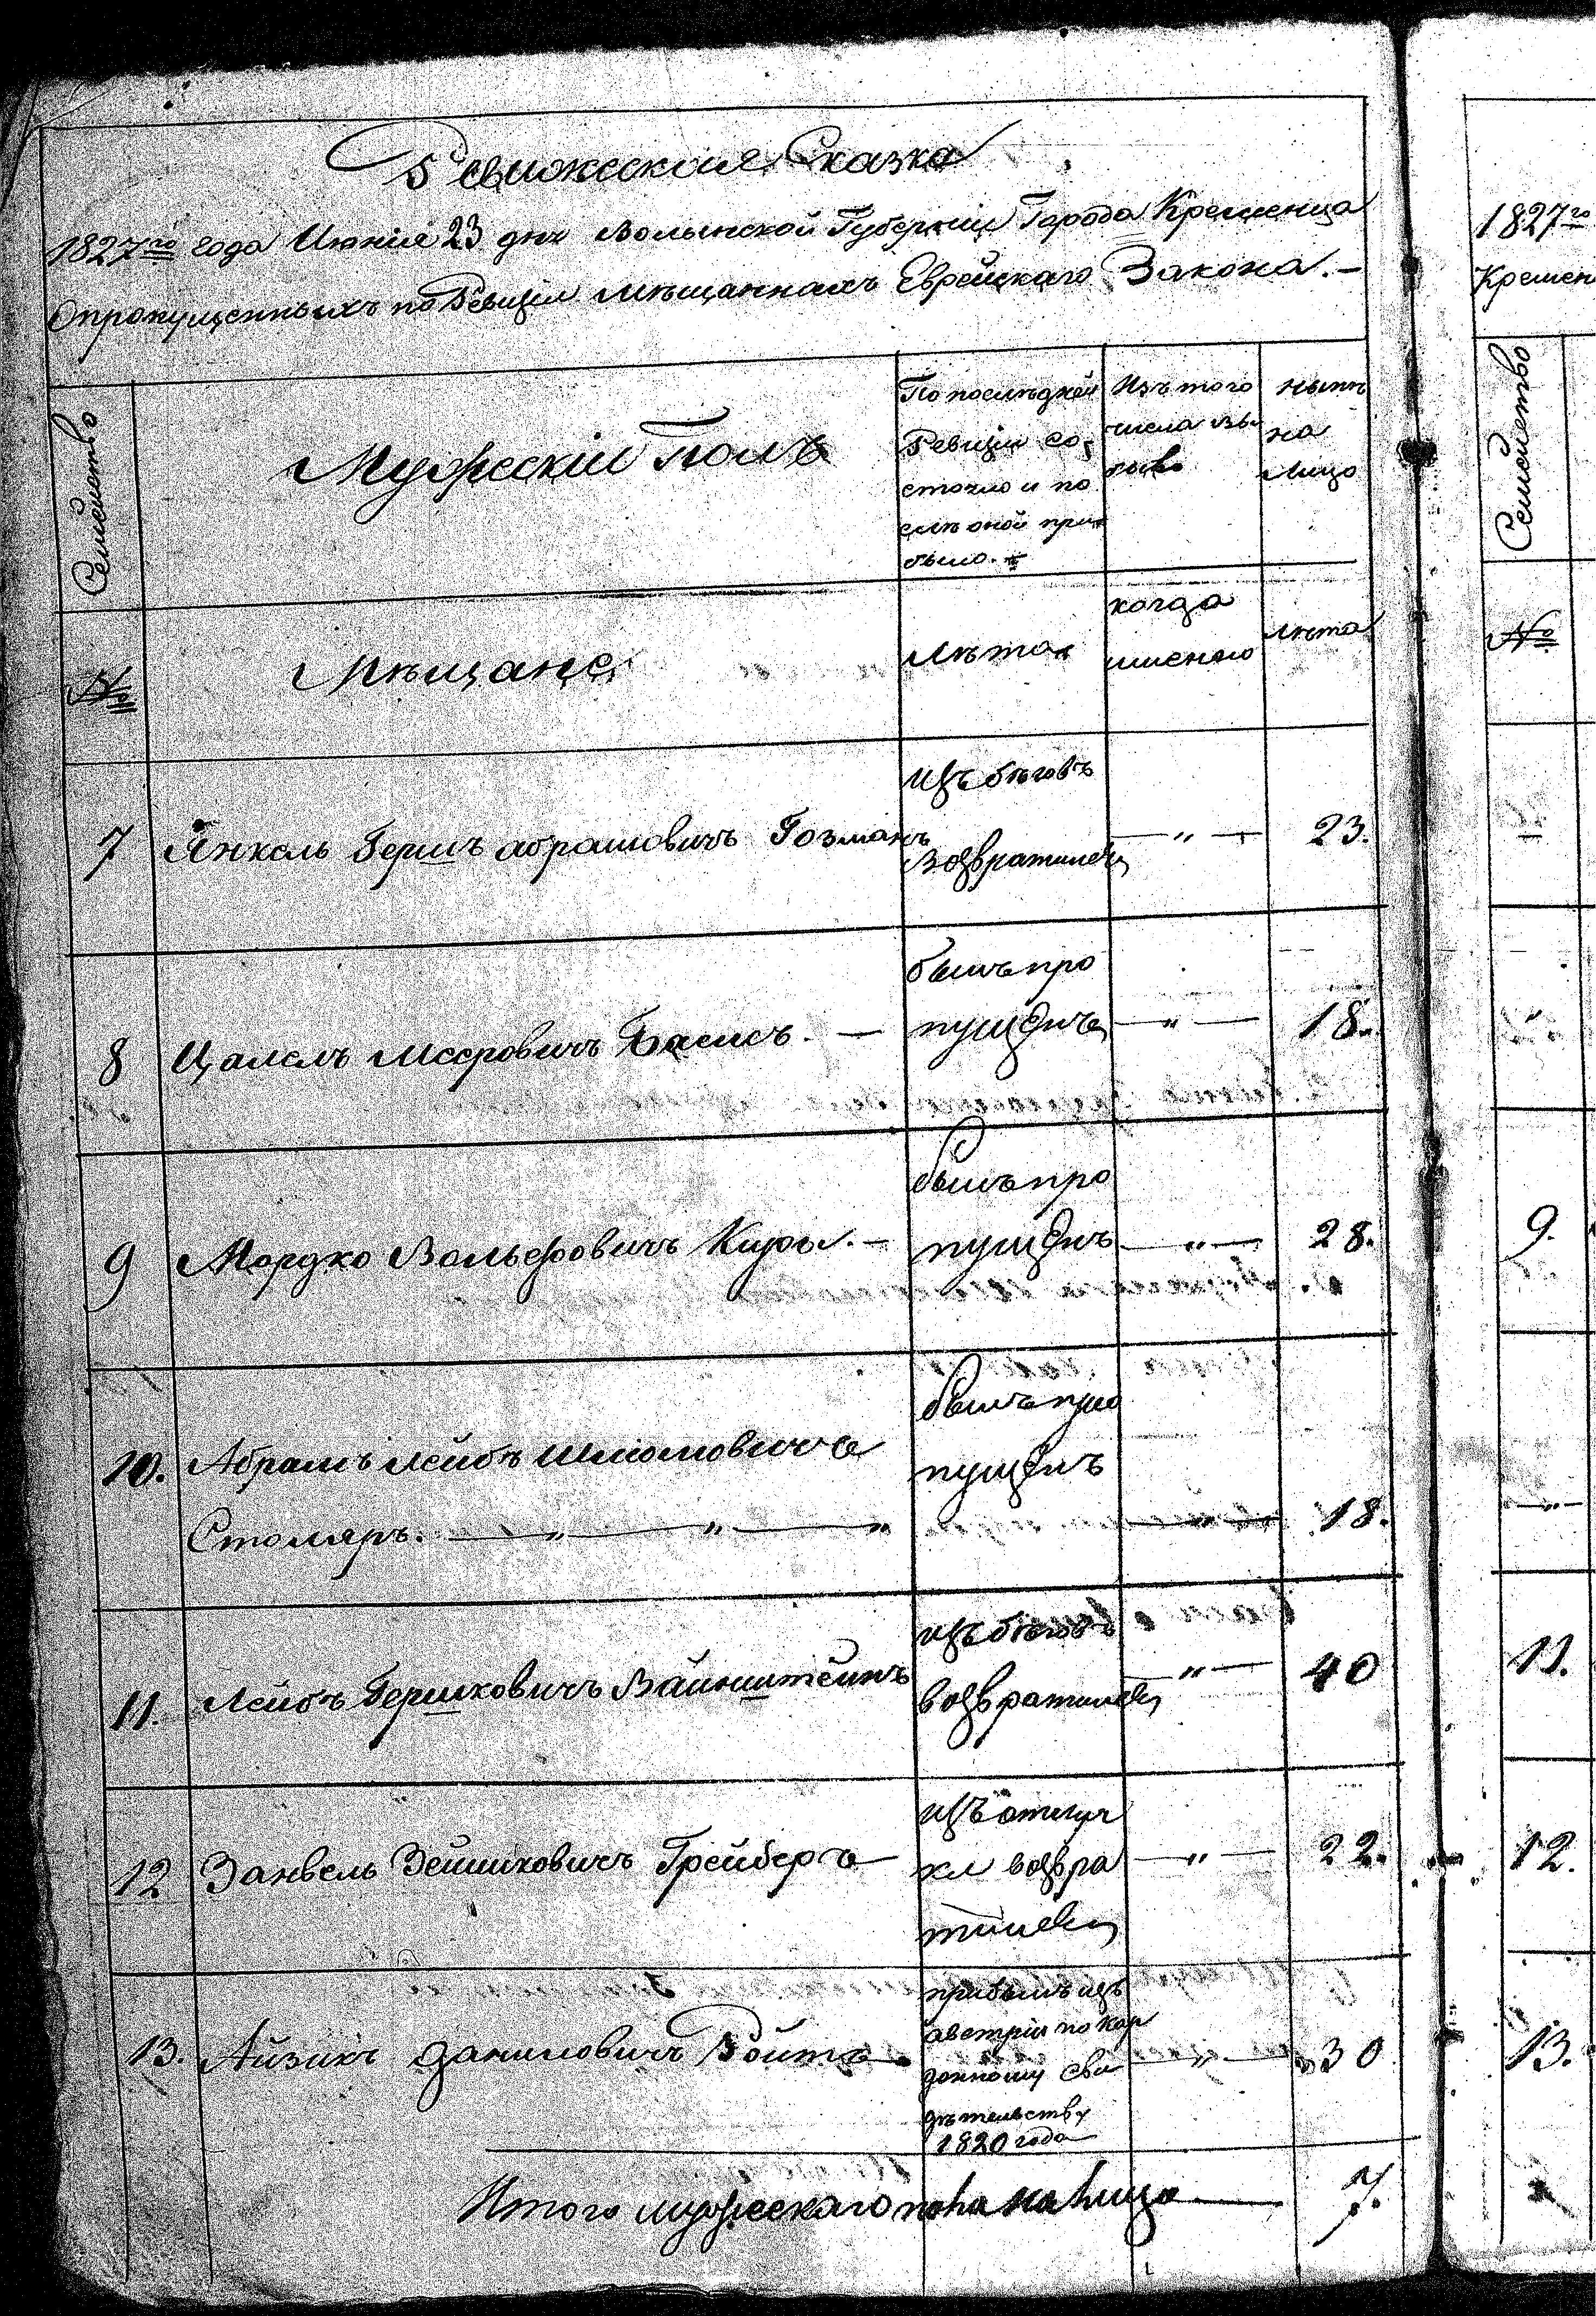 Ревижская Сказка
1827го года Июнія 23 дня Волынской Губерніи Города Кременца
О пропущенныхъ по Ревизіи мѣщаннахъ Еврейскаго Закона.—
Семейство
Мужескій Полъ
По послѣдней
Ревизіи со,
стояло и по
слѣ оной при
было.
Изъ того
числа вы
было
нынѣ
на
лицо
№
Мѣщане
Лѣта
когда
имѣнно
лѣта
7 Янкель Гершъ абрамовичъ Гозманъ
изъ бѣговъ
возвратился
— „ — 23.
8 Цалель Мееровичъ Басисъ. —
былъ про
пущенъ
— „ — 18.
9 Мордко Вольфовичъ —
былъ про
пущенъ
— „ — 28.
10. Абрамъ Лейбъ Шліомовичъ
Столяръ. — „ — „ — „
былъ про
пущенъ
— „ — 18.
11. Лейбъ Гершковичъ Вайнштейнъ
изъ бѣговъ
возвратился
— „ — 40
12 Занвель Зейликовичъ Грейберъ —
изъ отлуч
ки возвра
тился
— „ — 22.
13. Айзикъ Даниловичъ Ройтъ —
прибылъ изъ
австріи по кар
донному сви
дѣтельству
1820 года
— „ — 30
Итого мужескаго пола на лицо — 7.
1827го
Кремен
Семейство
№
9.
11.
12.
13.